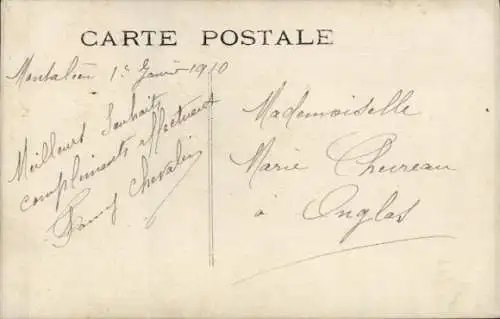 CARTE POSTALE
Montalieu 1er Janvier 1910
Meilleurs Souhaits
compliments affectueux
Fanny Chevalier
Mademoiselle
Marie Chevreau
à Onglas